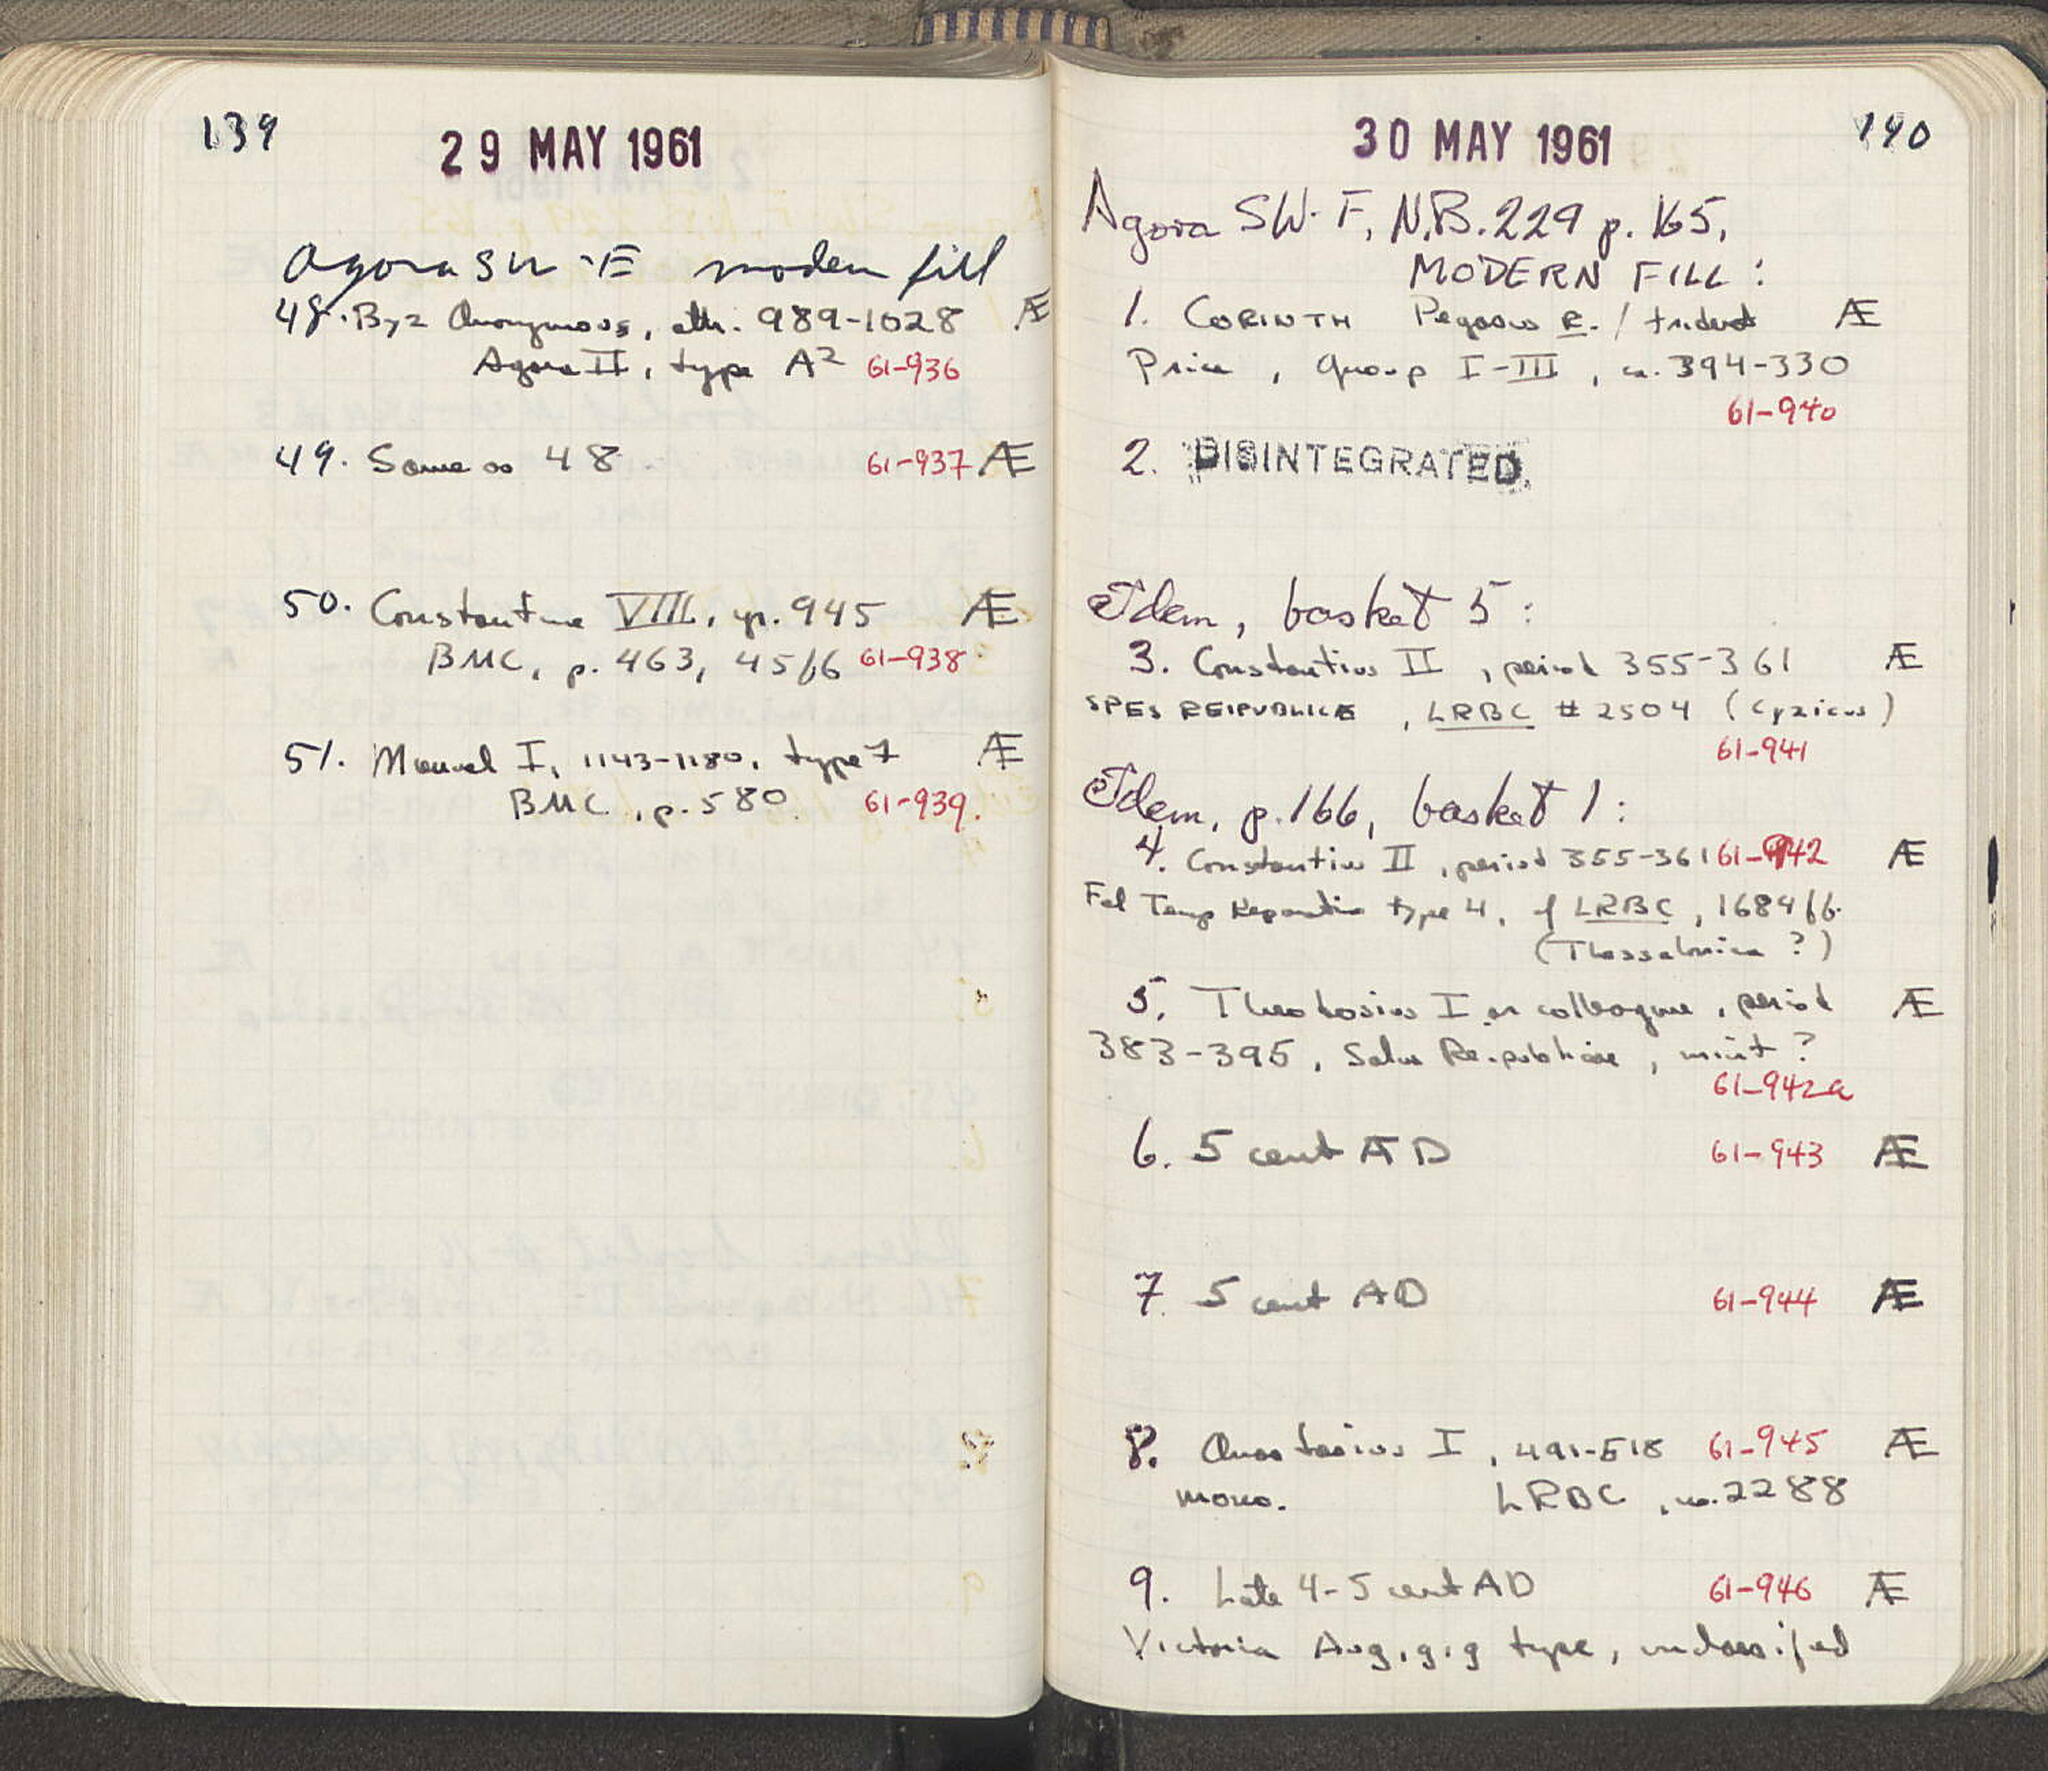 139
29 MAY 1961
Agora SW-F modern fill
48. Byz Anonymous, attr. 989-1028 Æ
Agora II, type A2 61-936
49. Same as 48 61-937 Æ
50. Constantine VIII, yr. 945 Æ
BMC, p. 463, 45ff 61-938
51. Manuel I, 1143-1180, type 7 Æ
BMC, p. 580 61-939.
140
30 MAY 1961
Agora SW-F, N.B. 229 p. 165,
MODERN FILL:
1. CORINTH Pegasus R. / trident Æ
Price, Group I-III, ca. 394-330
61-940
2. DISINTEGRATED
Idem, basket 5:
3. Constantius II, period 355-361 Æ
SPES REIPUBLICE, LRBC # 2504 (Cyzicus)
61-941
Idem, p. 166, basket 1:
4. Constantius II, period 355-361 61-942 Æ
Fel Temp Reparatio type 4, cf LRBC, 1684ff.
(Thessalonica ?)
5. Theodosius I or colleague, period Æ
383-395, Salus Reipublicae, mint ?
61-942a
6. 5 cent AD 61-943 Æ
7. 5 cent AD 61-944 Æ
8. Anastasius I, 491-518 61-945 Æ
mono. LRBC, no. 2288
9. Late 4-5 cent AD 61-946 Æ
Victoria Aug,g,g type, unclassified